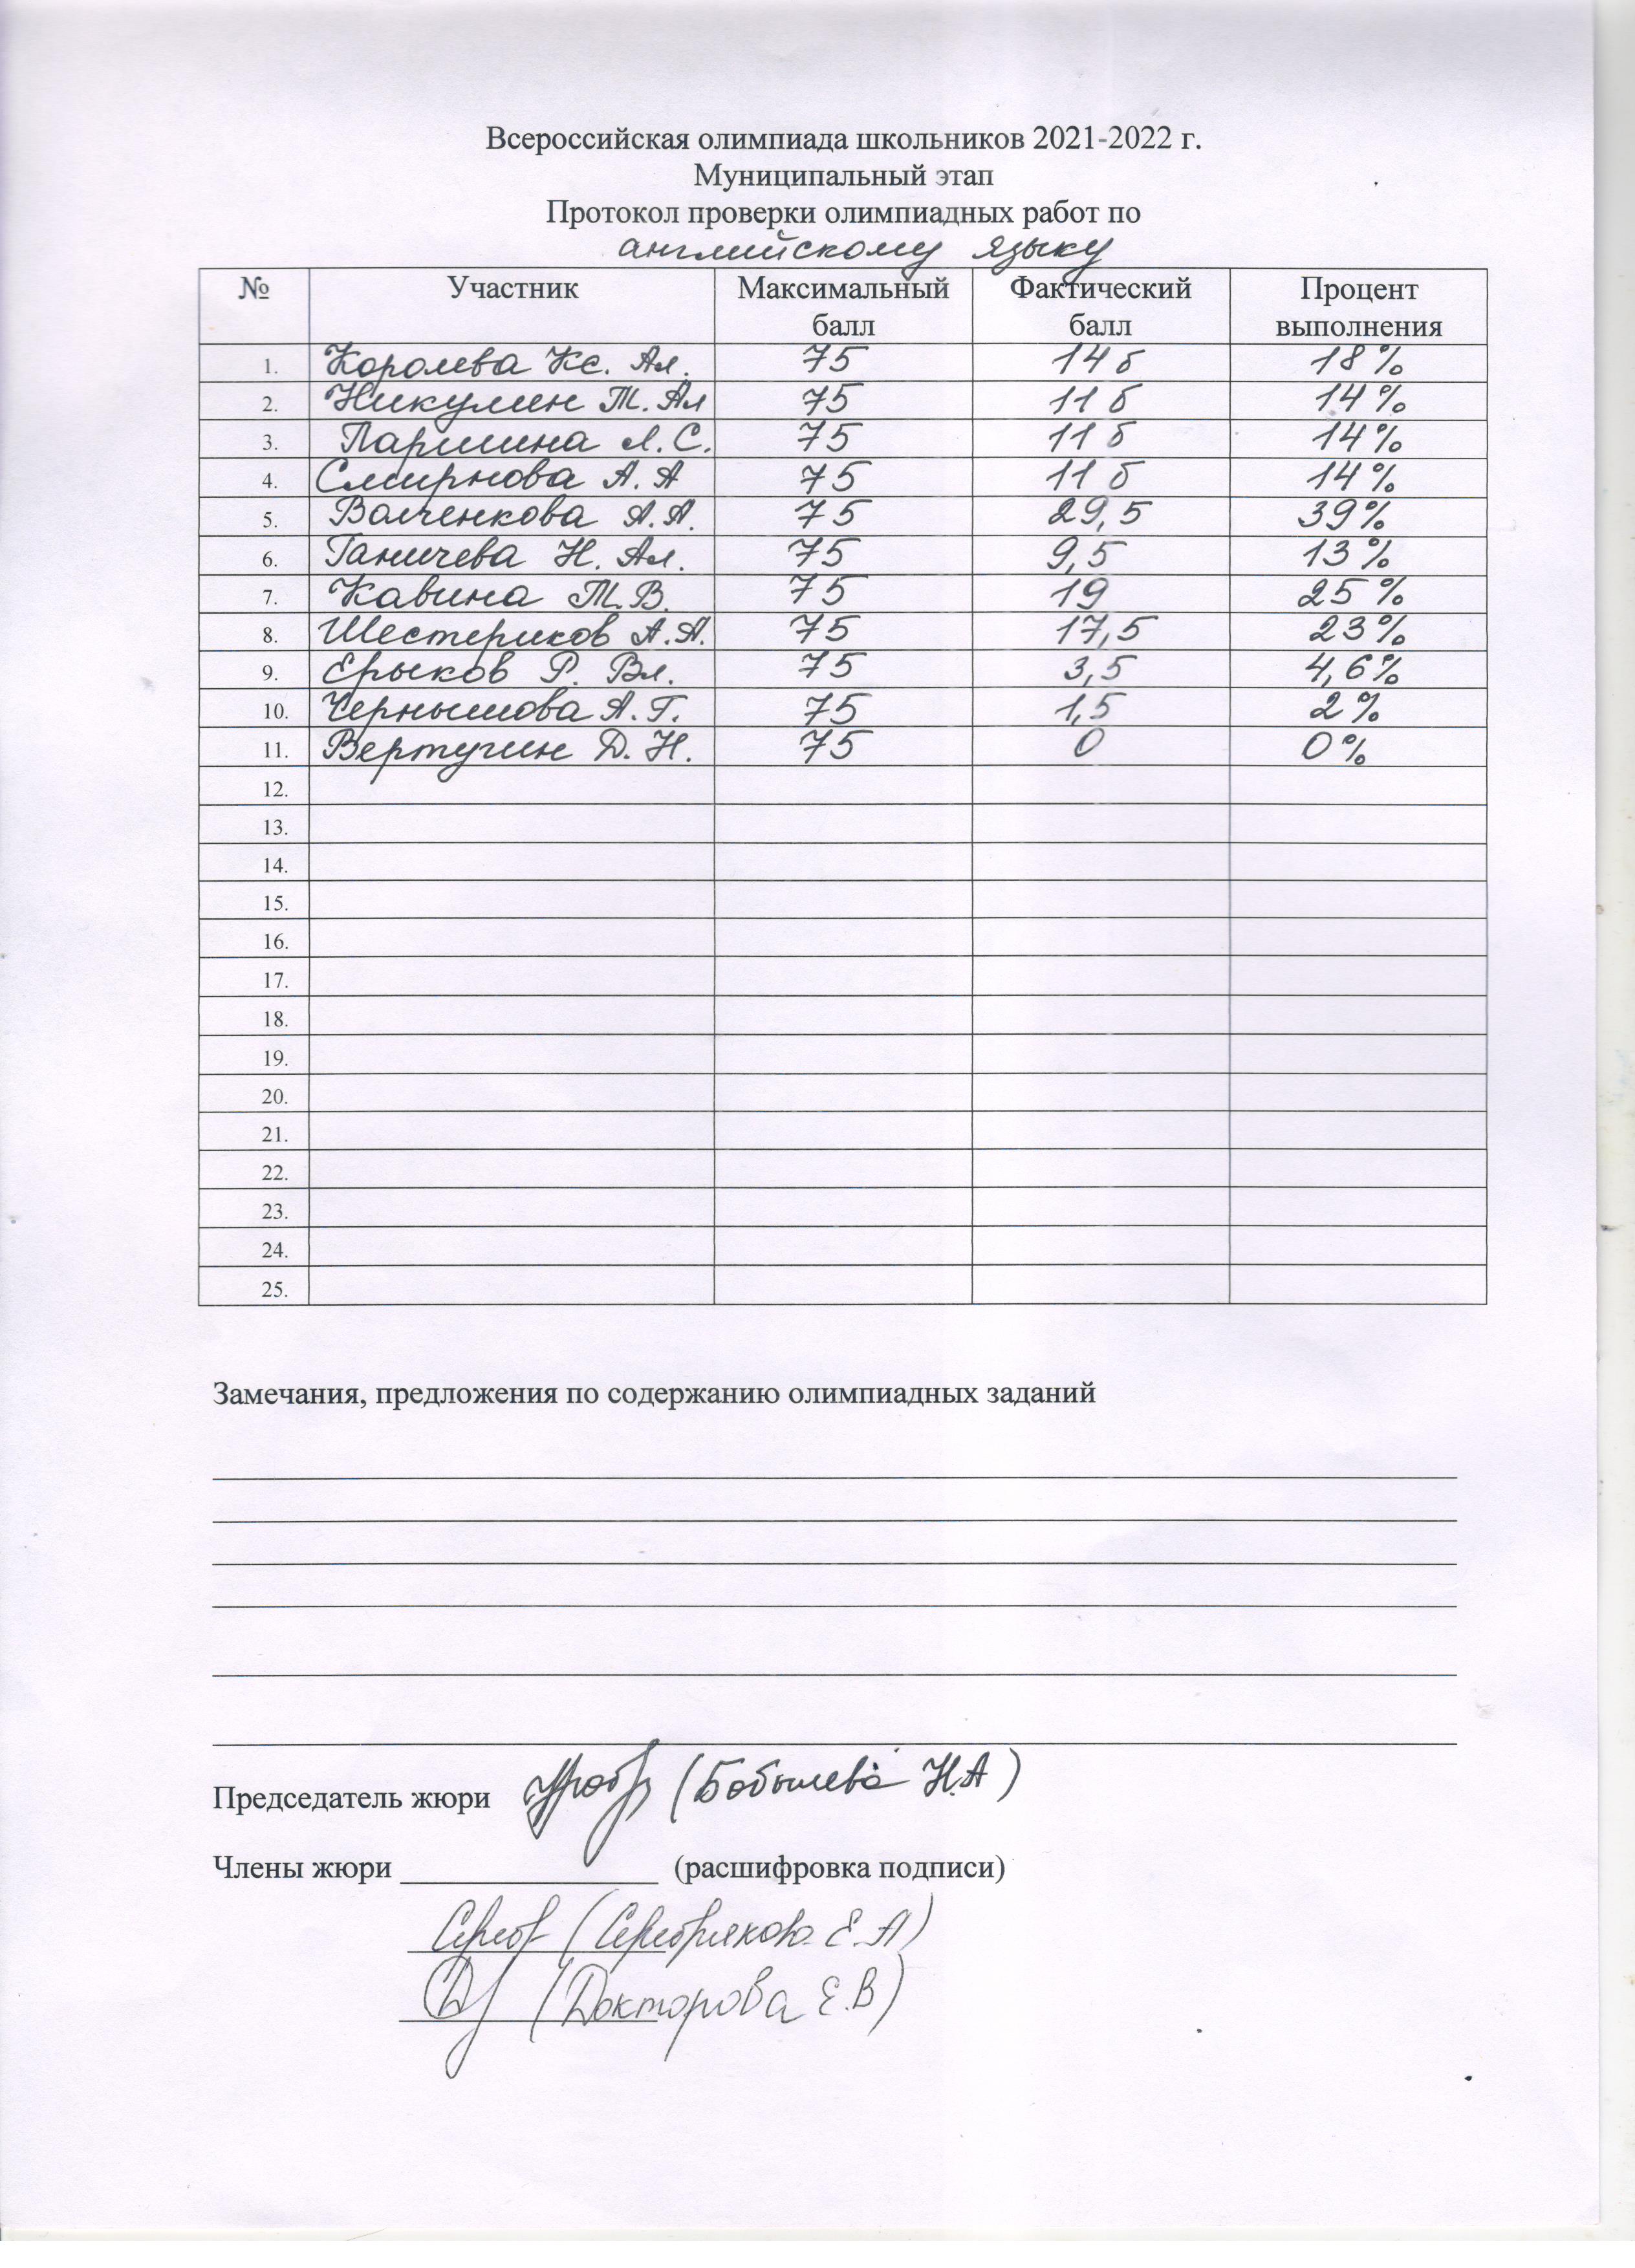 Всероссийская олимпиада школьников 2021-2022 г.
Муниципальный этап
Протокол проверки олимпиадных работ по
английскому языку
№ Участник Максимальный балл Фактический балл Процент выполнения
1. Королева Кс. Ал. 75 14 б 18 %
2. Никулин Т. Ал 75 11 б 14 %
3. Паршина Л. С. 75 11 б 14 %
4. Смирнова А. А 75 11 б 14 %
5. Волченкова А. А. 75 29,5 39 %
6. Ганичева Н. Ал. 75 9,5 13 %
7. Кавина Т. В. 75 19 25 %
8. Шестериков А. А. 75 17,5 23 %
9. Ерыков Р. Вл. 75 3,5 4,6 %
10. Чернышова А. Г. 75 1,5 2 %
11. Вертугин Д. Н. 75 0 0 %
12.
13.
14.
15.
16.
17.
18.
19.
20.
21.
22.
23.
24.
25.
Замечания, предложения по содержанию олимпиадных заданий
Председатель жюри (Бобылева Н.А)
Члены жюри (расшифровка подписи)
(Серебрякова Е.А)
(Докторова Е.В)